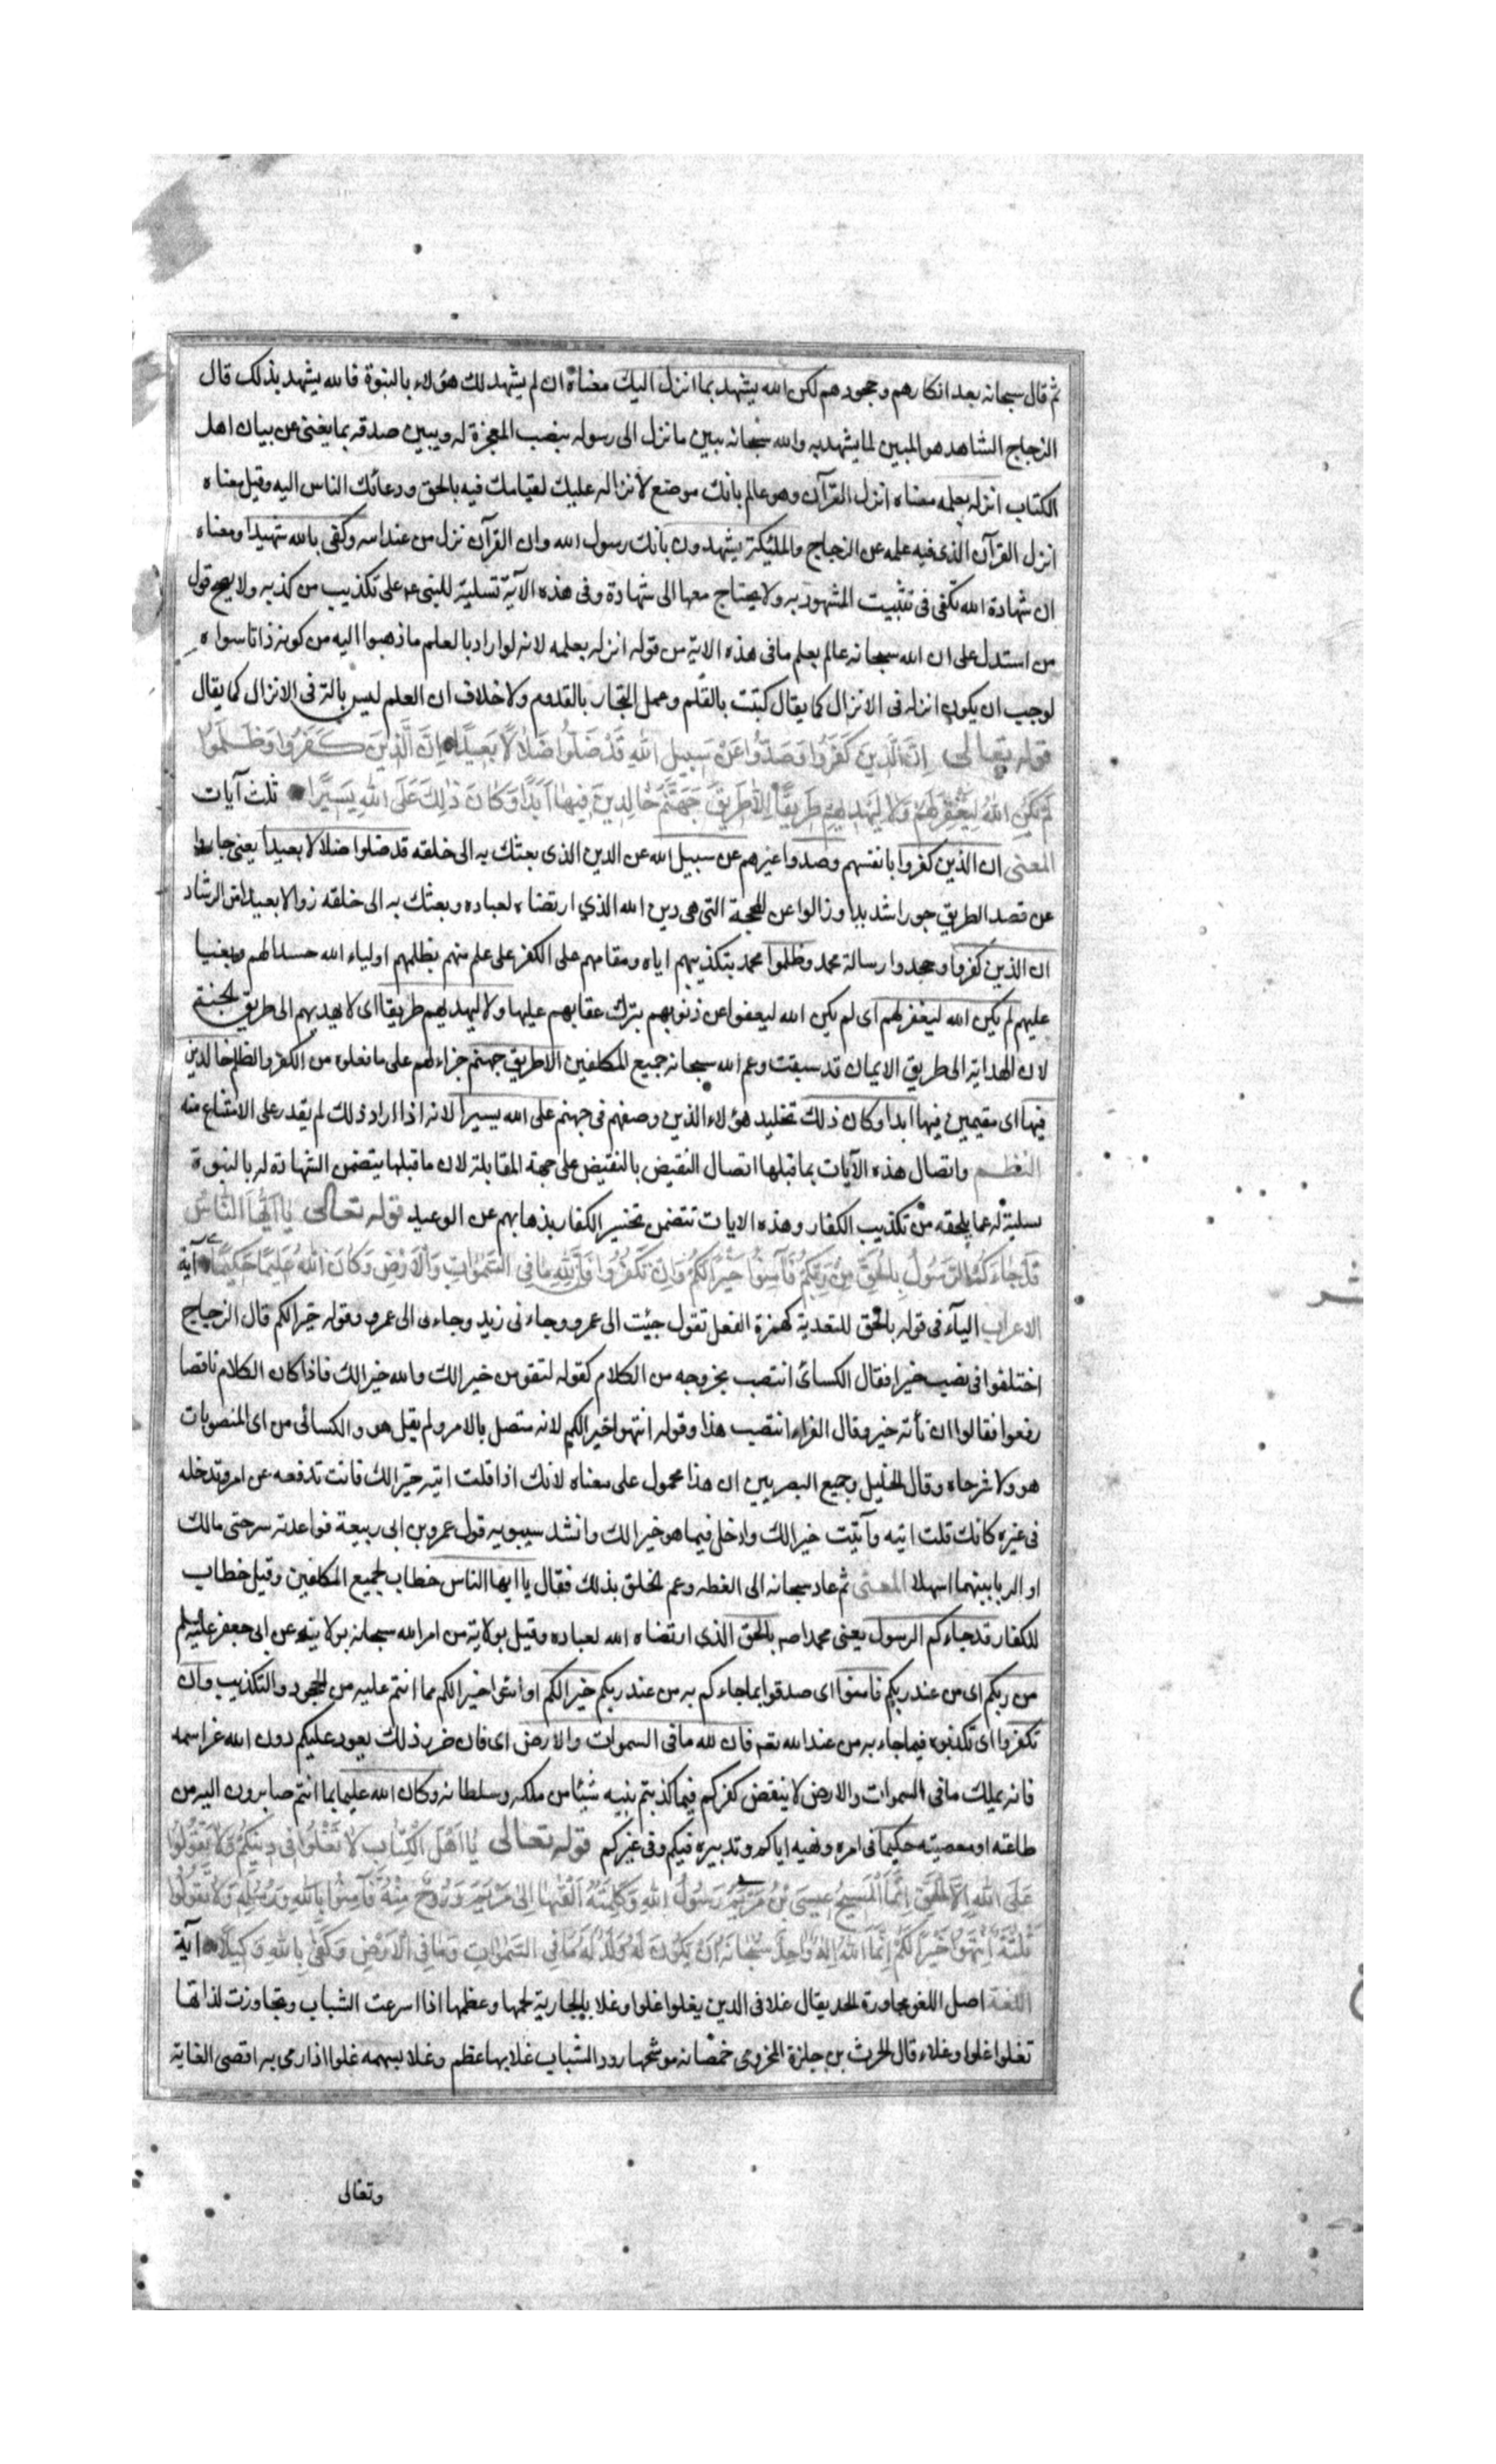 ثم قال سبحانه بعد انكارهم وجحودهم لكن الله يشهد بما انزل اليك معناه ان لم يشهد لك هؤلاء بالنبوة فالله يشهد بذلك قال
الزجاج الشاهد هو المبين لما يشهد به والله سبحانه يبين ما نزل الى رسوله بنصب المعجزة له ويبين صدقه بما يغنى عن بيان اهل
الكتاب انزله بعلمه معناه انزل القرآن وهو عالم بانك موضع لانزاله عليك لقيامك فيه بالحق ودعائك الناس اليه وقيل معناه
انزل القرآن الذى فيه علمه عن الزجاج والملئكة يشهدون بانك رسول الله وان القرآن نزل من عند الله وكفى بالله شهيدا ومعناه
ان شهادة الله تكفى فى تثبيت المشهود به ولا يحتاج معها الى شهادة وفى هذه الآية تسلية للنبى ع على تكذيب من كذبه ولا يصح قول
من استدل على ان الله سبحانه عالم بعلم ما فى هذه الاية من قوله انزله بعلمه لانه لو اراد بالعلم ما ذهبوا اليه من كونه ذاتا سواه
لوجب ان يكون انزله فى الانزال كما يقال كتبت بالقلم وعمل النجار بالقدوم ولا خلاف ان العلم ليس بالة فى الانزال كما يقال
قوله تعالى اِنَّ الَّذينَ كَفَرُوا وَصَدُّوا عَنْ سَبيلِ اللهِ قَدْ ضَلُّوا ضَلَالًا بَعيدًا اِنَّ الَّذينَ كَفَرُوا وَظَلَمُوا
لَمْ يَكُنِ اللهُ لِيَغْفِرَ لَهُمْ وَلَا لِيَهْدِيَهُمْ طَريقًا اِلَّا طَريقَ جَهَنَّمَ خَالِدينَ فيهَا اَبَدًا وَكَانَ ذٰلِكَ عَلَى اللهِ يَسيرًا ثلث آيات
المعنى ان الذين كفروا بانفسهم وصدوا غيرهم عن سبيل الله عن الدين الذى بعثك به الى خلقه قد ضلوا ضلالا بعيدا يعنى جاروا
عن قصد الطريق جورا شديدا وزالوا عن المحجة التى هى دين الله الذي ارتضاه لعباده وبعثك به الى خلقه زوالا بعيدا من الرشاد
ان الذين كفروا وجحدوا رسالة محمد وظلموا محمد بتكذيبهم اياه ومقامهم على الكفر على علم منهم بظلمهم اولياء الله حسدا لهم وبغيا
عليهم لم يكن الله ليغفر لهم اى لم يكن الله ليعفوا عن ذنوبهم بترك عقابهم عليها ولا ليهديهم طريقا اى لا يهديهم الى طريق الجنة
لان الهداية الى طريق الايمان قد سبقت وعم الله سبحانه جميع المكلفين الا طريق جهنم جزاء لهم على ما فعلوه من الكفر والظلم خالدين
فيها اى مقيمين فيها ابدا وكان ذلك تخليد هؤلاء الذين وصفهم فى جهنم على الله يسيرا لانه اذا اراد ذلك لم يقدر على الامتناع منه
النظم واتصال هذه الآيات بما قبلها اتصال النقيض بالنقيض على جهة المقابلة لان ما قبلها يتضمن الشهادة له بالنبوة
تسلية له عما يلحقه من تكذيب الكفار وهذه الايات تتضمن تخسير الكفار بذهابهم عن الوعيد قوله تعالى يَا اَيُّهَا النَّاسُ
قَدْ جَاءَكُمُ الرَّسُولُ بِالْحَقِّ مِنْ رَبِّكُمْ فَآمِنُوا خَيْرًا لَكُمْ وَاِنْ تَكْفُرُوا فَاِنَّ لِلّٰهِ مَا فِى السَّمٰوَاتِ وَالْاَرْضِ وَكَانَ اللهُ عَليمًا حَكيمًا آية
الاعراب الباء فى قوله بالحق للتعدية كهمزة الفعل تقول جئت الى عمرو وجاءنى زيد وجاءنى الى عمرو وقوله خيرا لكم قال الزجاج
اختلفوا فى نصب خيرا فقال الكسائى انتصب بخروجه من الكلام كقوله لتقومن خيرا لك والله خيرا لك فاذا كان الكلام ناقصا
رفعوا فقالوا ان تأته خير وقال الفراء انتصب هذا وقوله انتهوا خيرا لكم لانه متصل بالامر ولم يقل هو والكسائى من اى المنصوبات
هو ولا شرحاه وقال الخليل وجميع البصريين ان هذا محمول على معناه لانك اذا قلت ايته خيرا لك فانت تدفعه عن امر وتدخله
فى غيره كانك قلت ايته وآتيت خيرا لك وادخل فيما هو خيرا لك وانشد سيبويه قول عمرو بن ابى ربيعة فواعدته سرحتى مالك
او الربا بينهما اسهلا المعنى ثم عاد سبحانه الى العظة وعم الخلق بذلك فقال يا ايها الناس خطاب لجميع المكلفين وقيل خطاب
للكفار قد جاءكم الرسول يعنى محمدا ص بالحق الذى ارتضاه الله لعباده وقيل بولاية من امر الله سبحانه بولايته عن ابى جعفر عليه السلم
من ربكم اى من عند ربكم فامنوا اى صدقوا بما جاءكم به من عند ربكم خيرا لكم او ائتوا خيرا لكم مما انتم عليه من الجحود والتكذيب وان
تكفروا اى تكذبوه فيما جاء به من عند الله فان لله ما فى السموات والارض اى فان ضرر ذلك يعود عليكم دون الله عز اسمه
فانه يملك ما فى السموات والارض لا ينقص كفركم فيما كذبتم بنبيه شيئا من ملكه وسلطانه وكان الله عليما بما انتم صابرون اليه من
طاعته او معصيته حكيما فى امره ونهيه اياكم وتدبيره فيكم وفى غيركم قوله تعالى يَا اَهْلَ الْكِتَابِ لَا تَغْلُوا فى دينِكُمْ وَلَا تَقُولُوا
عَلَى اللهِ اِلَّا الْحَقَّ اِنَّمَا الْمَسيحُ عيسَى بْنُ مَرْيَمَ رَسُولُ اللهِ وَكَلِمَتُهُ اَلْقٰيهَا اِلٰى مَرْيَمَ وَرُوحٌ مِنْهُ فَآمِنُوا بِاللهِ وَرُسُلِهِ وَلَا تَقُولُوا
ثَلٰثَةٌ اِنْتَهُوا خَيْرًا لَكُمْ اِنَّمَا اللهُ اِلٰهٌ وَاحِدٌ سُبْحَانَهُ اَنْ يَكُونَ لَهُ وَلَدٌ لَهُ مَا فِى السَّمٰوَاتِ وَمَا فِى الْاَرْضِ وَكَفٰى بِاللهِ وَكيلًا آية
اللغة اصل اللغو مجاورة الحد يقال غلا فى الدين يغلوا غلوا وغلا بالجارية لحمها وعظمها اذا اسرعت الشباب وتجاوزت لذاتها
تغلوا غلوا وغلاء قال الحرث بن حلزة المخزومى خمصانه موشحها رود الشباب غلابها عظم وغلا بسهمه غلوا اذا رمى به اقصى الغاية
وتعالى